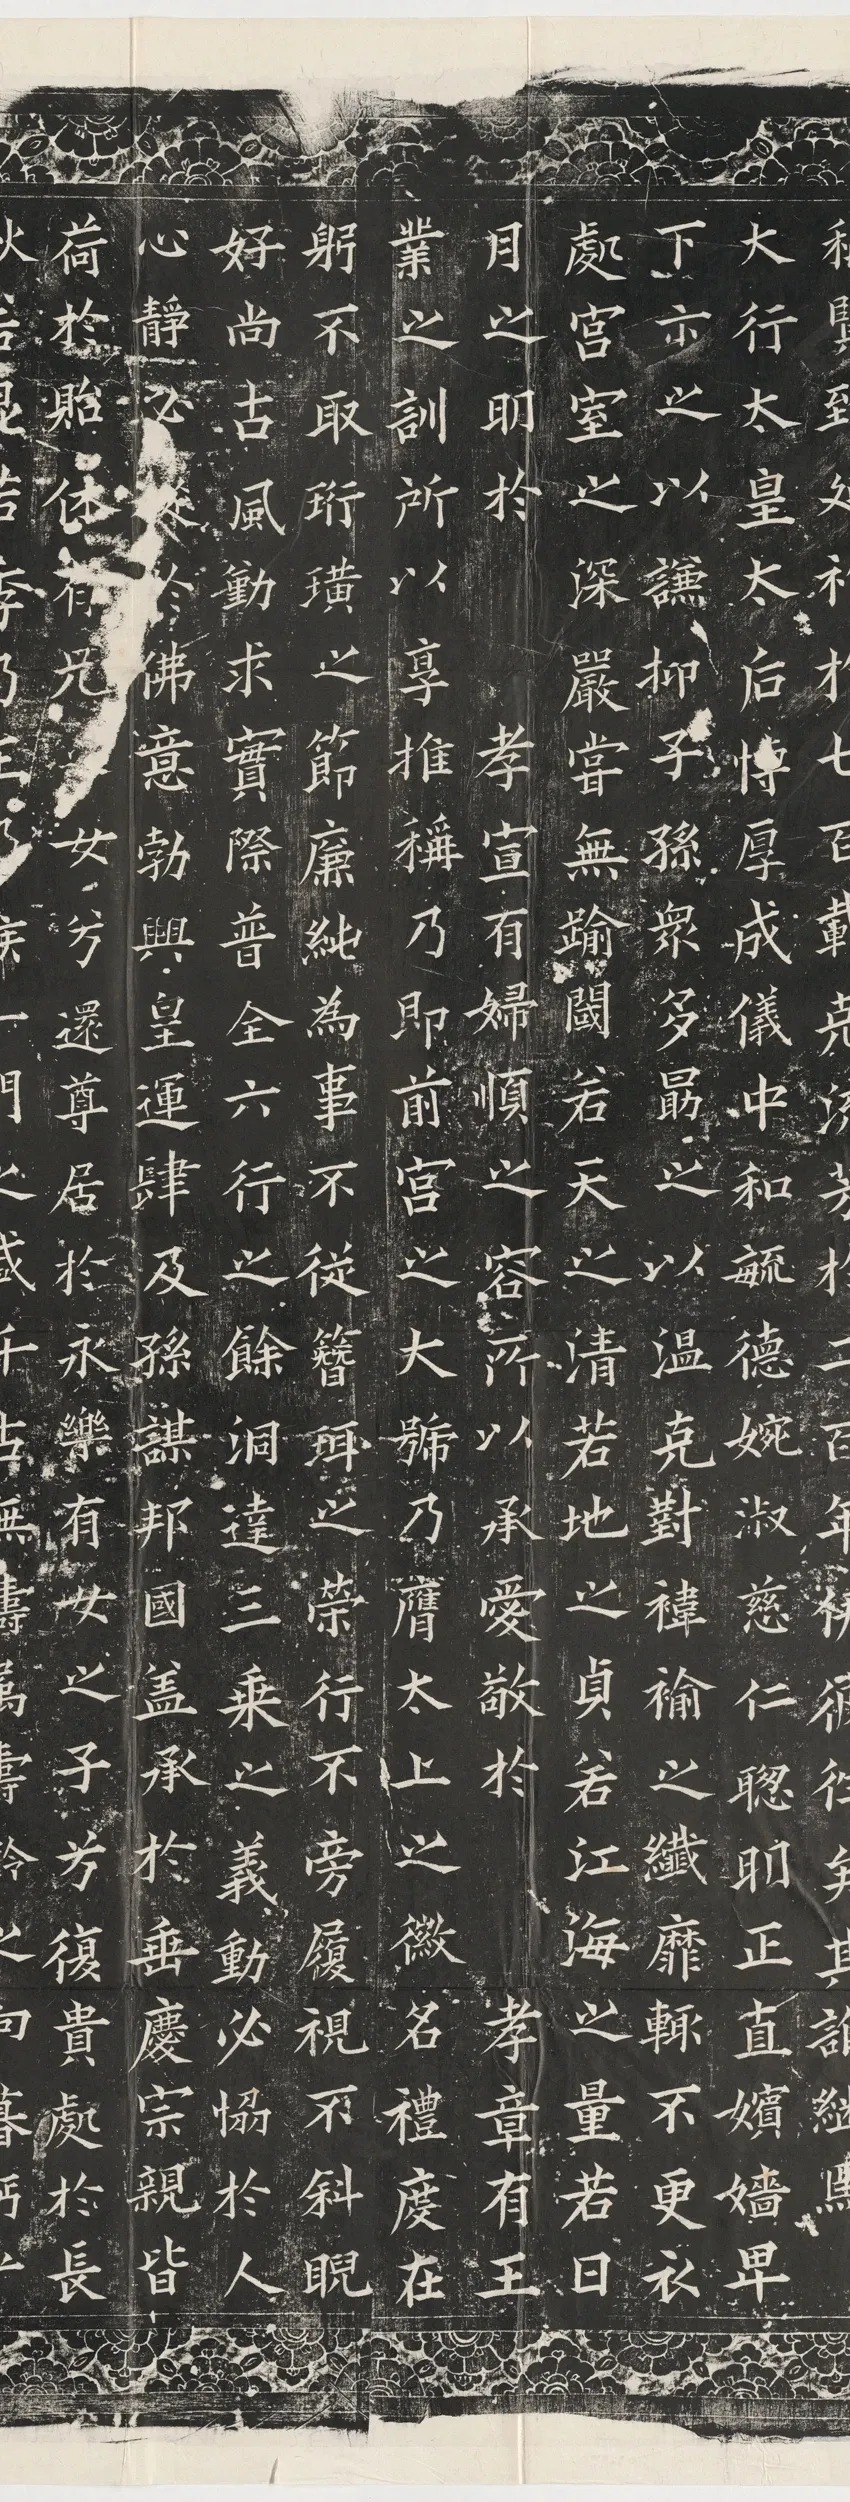 大行太皇太后愽厚成儀中和毓德婉淑慈仁聦明正直嬪嬙卑
下示之以謙抑子孫衆多勗之以温克對褘褕之纖靡輙不更衣
處宫室之深嚴甞無踰閾若天之清若地之貞若江海之量若日
月之明於 孝宣有婦順之容所以承愛敬於 孝章有王
業之訓所以享推稱乃即前宫之大號乃膺太上之徽名禮度在
躬不取珩璜之節廉純為事不從簪珥之榮行不旁履視不斜睨
好尚古風動求實際普全六行之餘洞達三乗之義動必恊於人
心靜必 於佛意勃興皇運肆及孫謀邦國盖承於垂慶宗親皆
荷於貽休 女兮還尊居於永樂有女之子兮復貴處於長